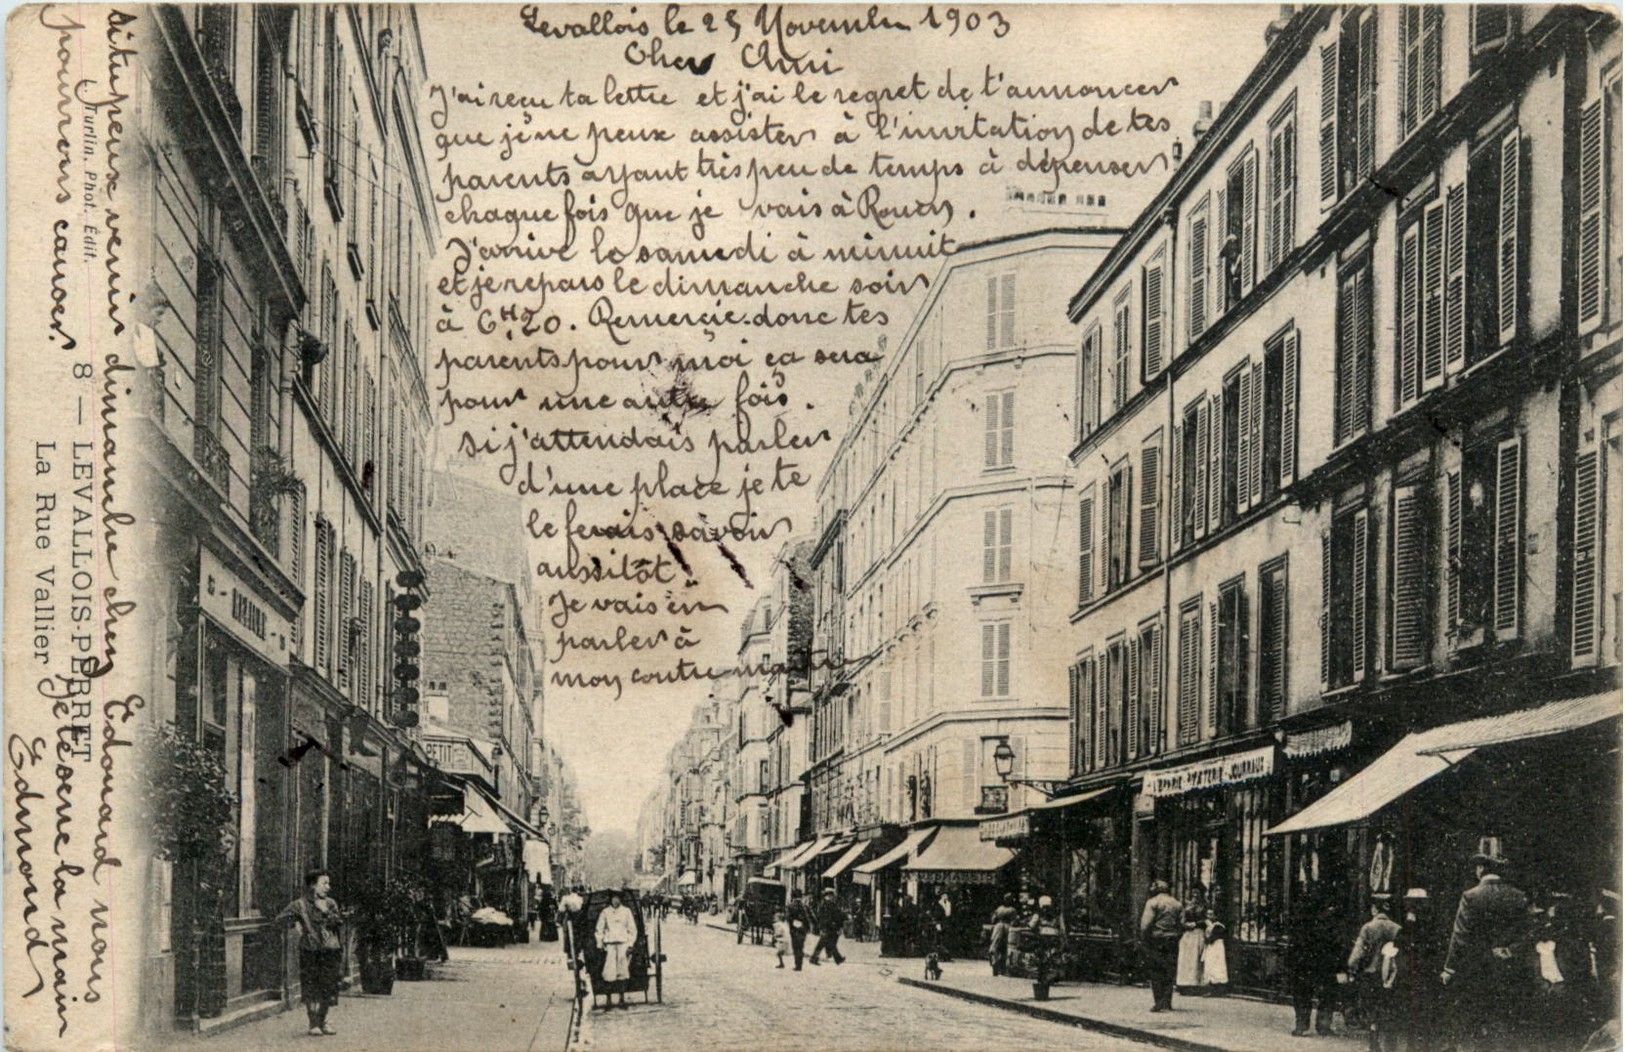 Levallois le 25 Novembre 1903
Cher Ami
J'ai reçu ta lettre et j'ai le regret de t'annoncer
que je ne peux assister à l'invitation de tes
parents ayant très peu de temps à dépenser
chaque fois que je vais à Rouen.
J'arrive le samedi à minuit
et je repars le dimanche soir
à 6H20. Remercie donc tes
parents pour moi ça sera
pour une autre fois.
si j'attendais parler
d'une place je te
le ferais savoir
aussitôt.
Je vais en
parler à
mon contre-maitre
si tu peux venir dimanche chez Edouard nous
pourrions causer. Je te serre la main
Edmond
Turlin. Phot. Édit.
8 — LEVALLOIS-PERRET
La Rue Vallier
PETIT
JOURNAUX